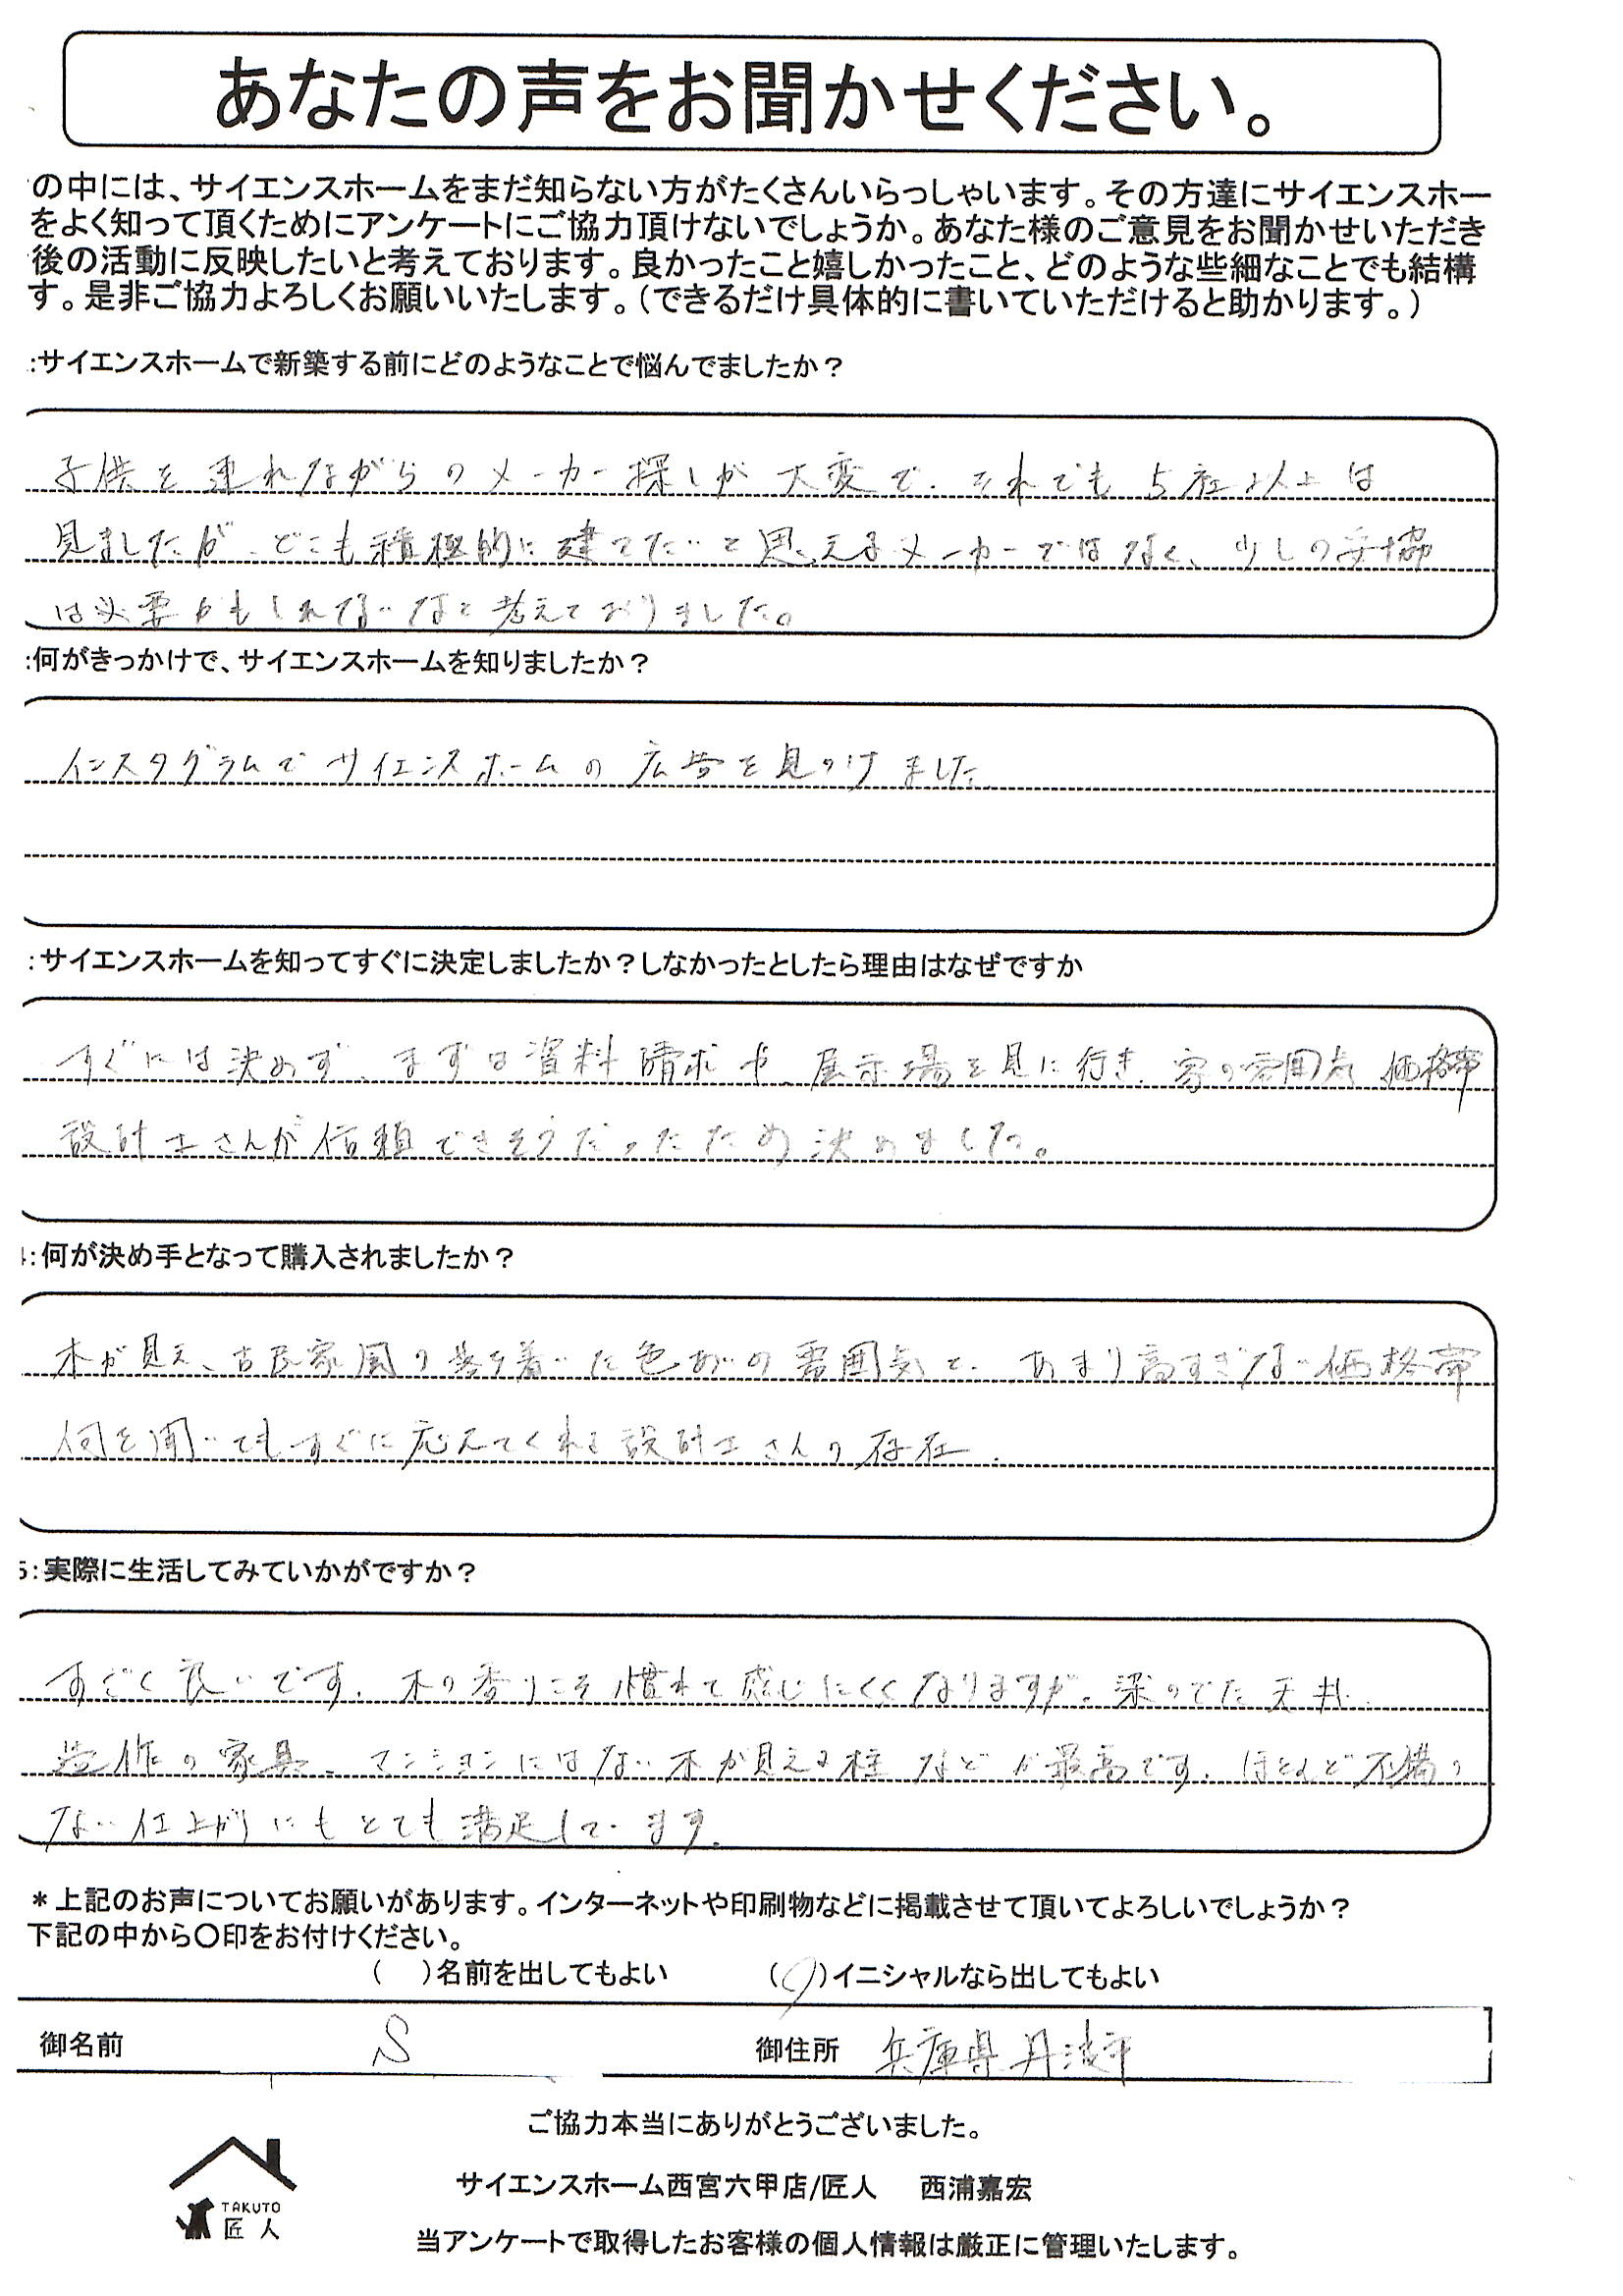 あなたの声をお聞かせください。
の中には、サイエンスホームをまだ知らない方がたくさんいらっしゃいます。その方達にサイエンスホー
をよく知って頂くためにアンケートにご協力頂けないでしょうか。あなた様のご意見をお聞かせいただき
後の活動に反映したいと考えております。良かったこと嬉しかったこと、どのような些細なことでも結構
す。是非ご協力よろしくお願いいたします。(できるだけ具体的に書いていただけると助かります。)
:サイエンスホームで新築する前にどのようなことで悩んでましたか?
子供を連れながらのメーカー探しが大変で、それでも5社以上は
見ましたが、どこも積極的に建てたいと思えるメーカーではなく、少しの妥協
は必要かもしれないなと考えておりました。
:何がきっかけで、サイエンスホームを知りましたか?
インスタグラムでサイエンスホームの広告を見つけました
:サイエンスホームを知ってすぐに決定しましたか?しなかったとしたら理由はなぜですか
すぐには決めず、まずは資料請求や、展示場を見に行き、家の雰囲気 価格帯
設計士さんが信頼できそうだったため決めました。
4:何が決め手となって購入されましたか?
木が見え、古民家風の落ち着いた色あいの雰囲気と、あまり高すぎない価格帯
何を聞いてもすぐに応えてくれる設計士さんの存在.
5:実際に生活してみていかがですか?
すごく良いです。木の香りこそ慣れて感じにくくなりますが、梁のでた天井、
造作の家具、マンションにはない木が見える柱などが最高です。ほとんど不満の
ない仕上がりにもとても満足しています。
*上記のお声についてお願いがあります。インターネットや印刷物などに掲載させて頂いてよろしいでしょうか?
下記の中から〇印をお付けください。
( )名前を出してもよい (〇)イニシャルなら出してもよい
御名前 S 御住所 兵庫県丹波市
ご協力本当にありがとうございました。
サイエンスホーム西宮六甲店/匠人 西浦嘉宏
TAKUTO
匠人
当アンケートで取得したお客様の個人情報は厳正に管理いたします。